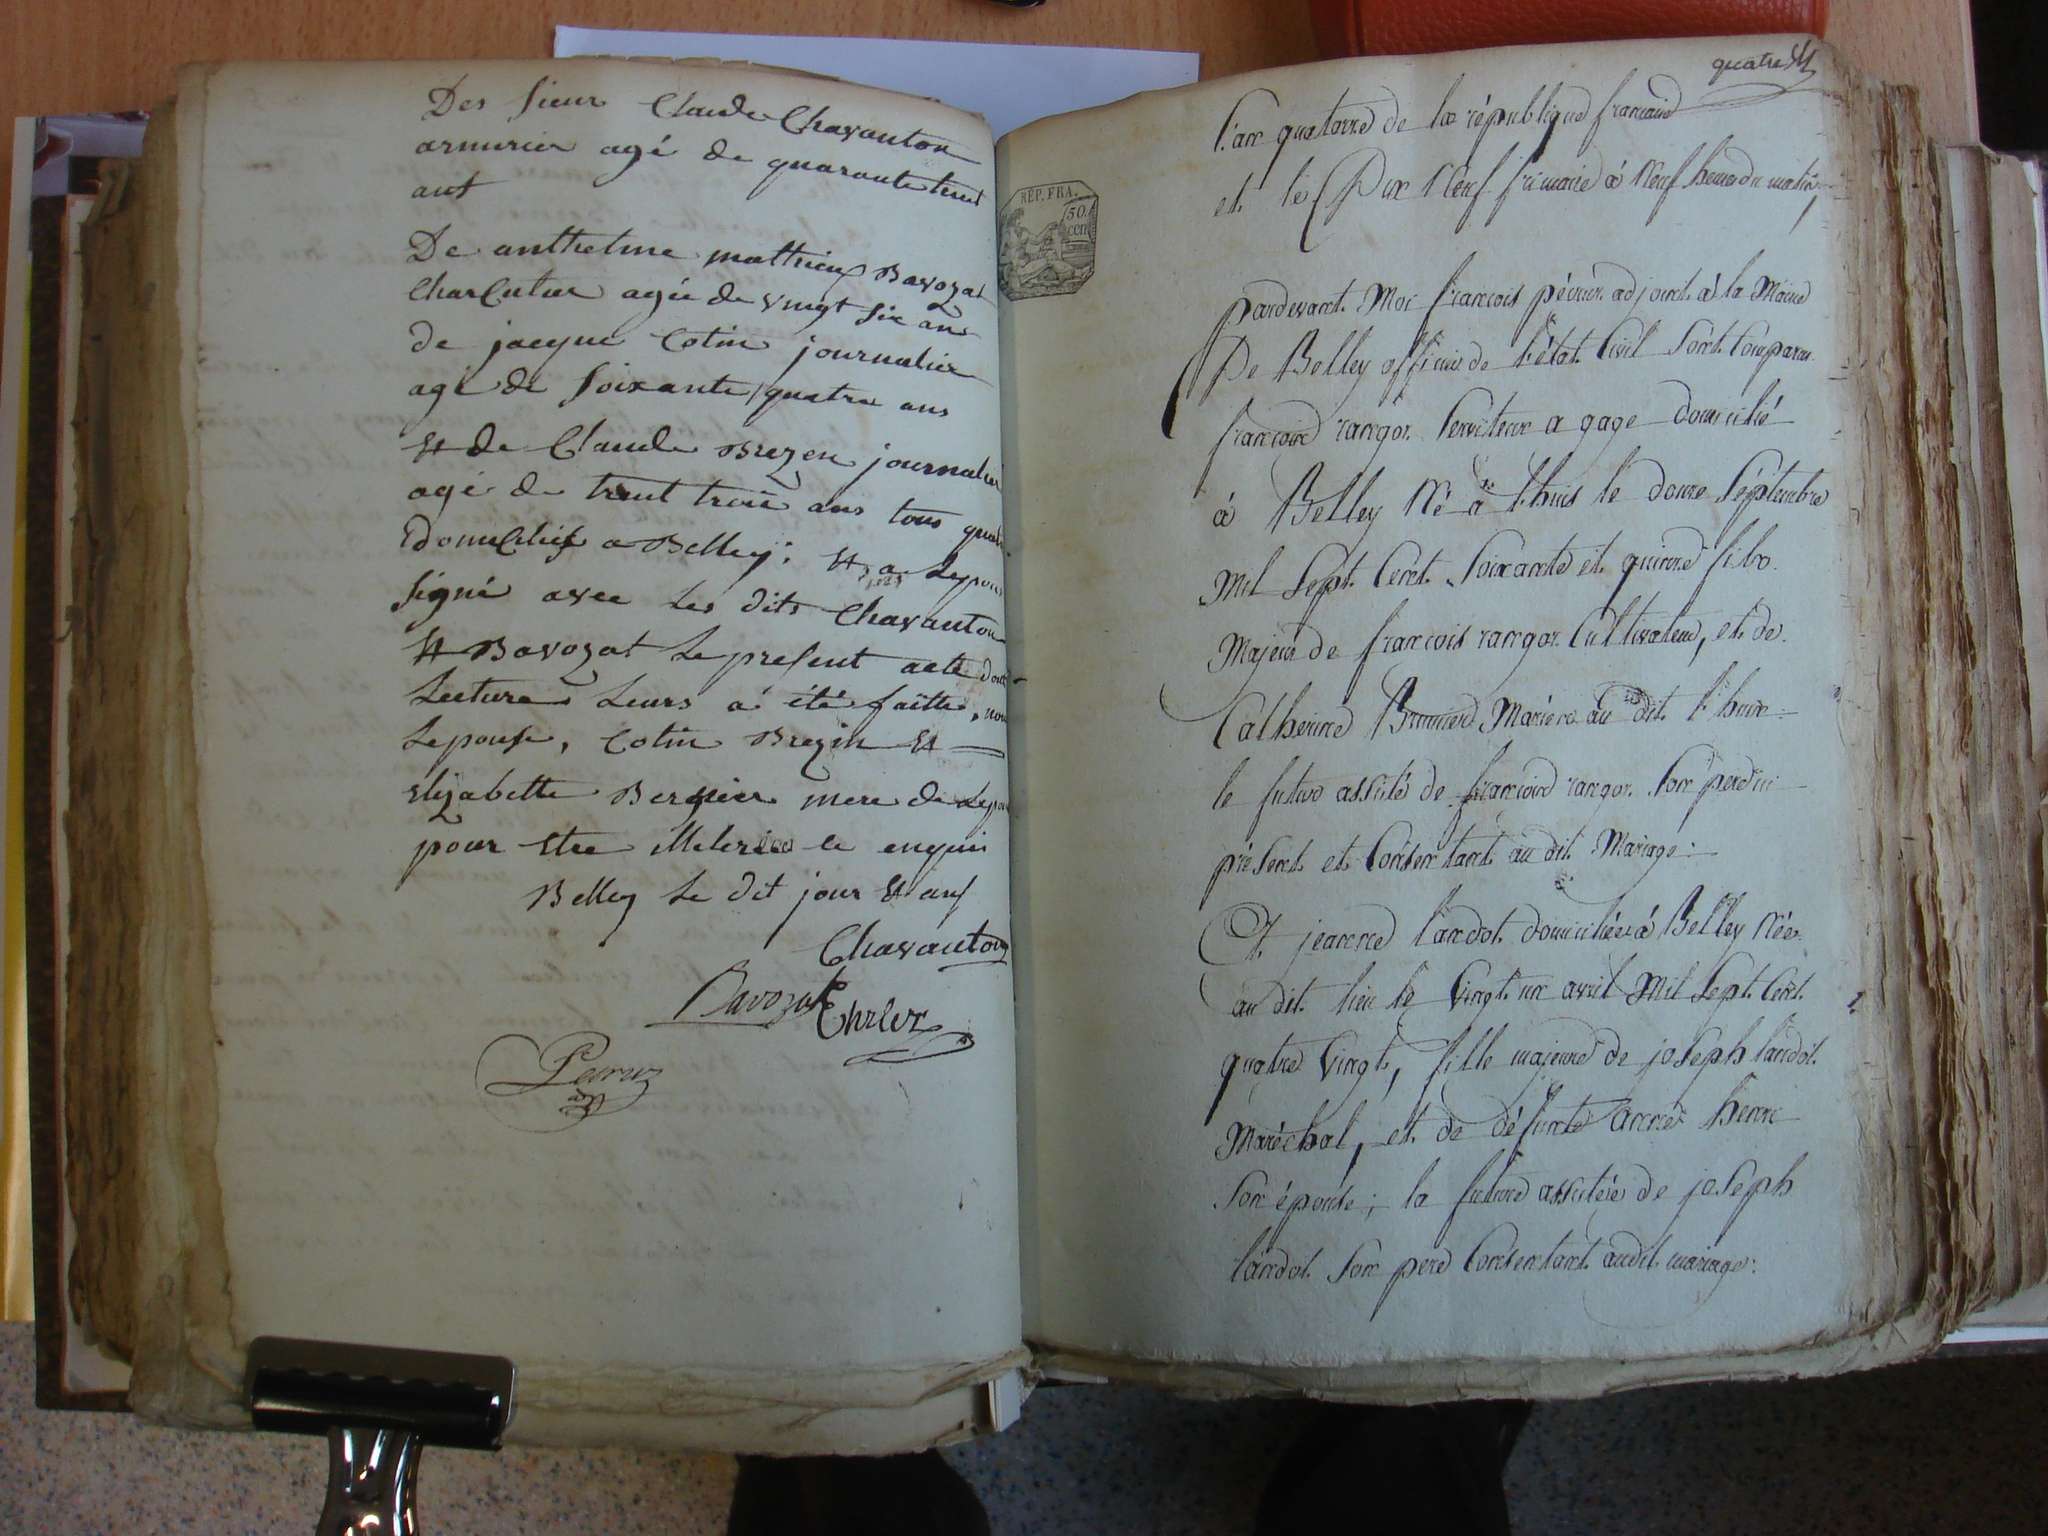 Des sieur Claude Chavanton
armurier agé de quarante huit
ans
De anthelme mathieu Bavozat
Charcutier agée de vingt six an
de jacque Cotin journalier
agé de soixante quatre ans
et de Claude Brezen journalier
agé de trent trois ans tous quat
domicilies a Belley; et a Lepoux
signé avec les dits Chavanton
et Bavozat Le present acte dont
Lecture Leurs a été faitte, non
Lepouse, Cotin Brezin et
Elizabette Bergier mere de Lepou
pour etre illeteréé ce enquis
Belley Le dit jour et an
Chavanton
Bavozat
Ehrler
quatre
l'an quatorze de la république francaise
et le Dix Neuf frimaire à Neuf heure du matin
REP. FRA.
50
cen
pardevant Moi francois péruz adjoint à la Mairie
De Belley officier de l'état Civil sont Comparus
francois rangot serviteur a gage domicilié
à Belley Né à l'huis le douze septembre
Mil sept Cent soixante et quinze fils
Majeur de francois rangot Cultivateur, et de
Catherine Brunier Mariers au dit l'huis
le futur assisté de francois rangot son perd
présent et Consentant au dit Mariage:
Et jeanne landot domiciliée à Belley Née
au dit lieu le vingt un avril Mil sept Cent
quatre vingt, fille majeure de joseph landot
Maréchal, et de défunte anne
son épouse; la future assistée de joseph
landot son pere Consentant audit mariage: